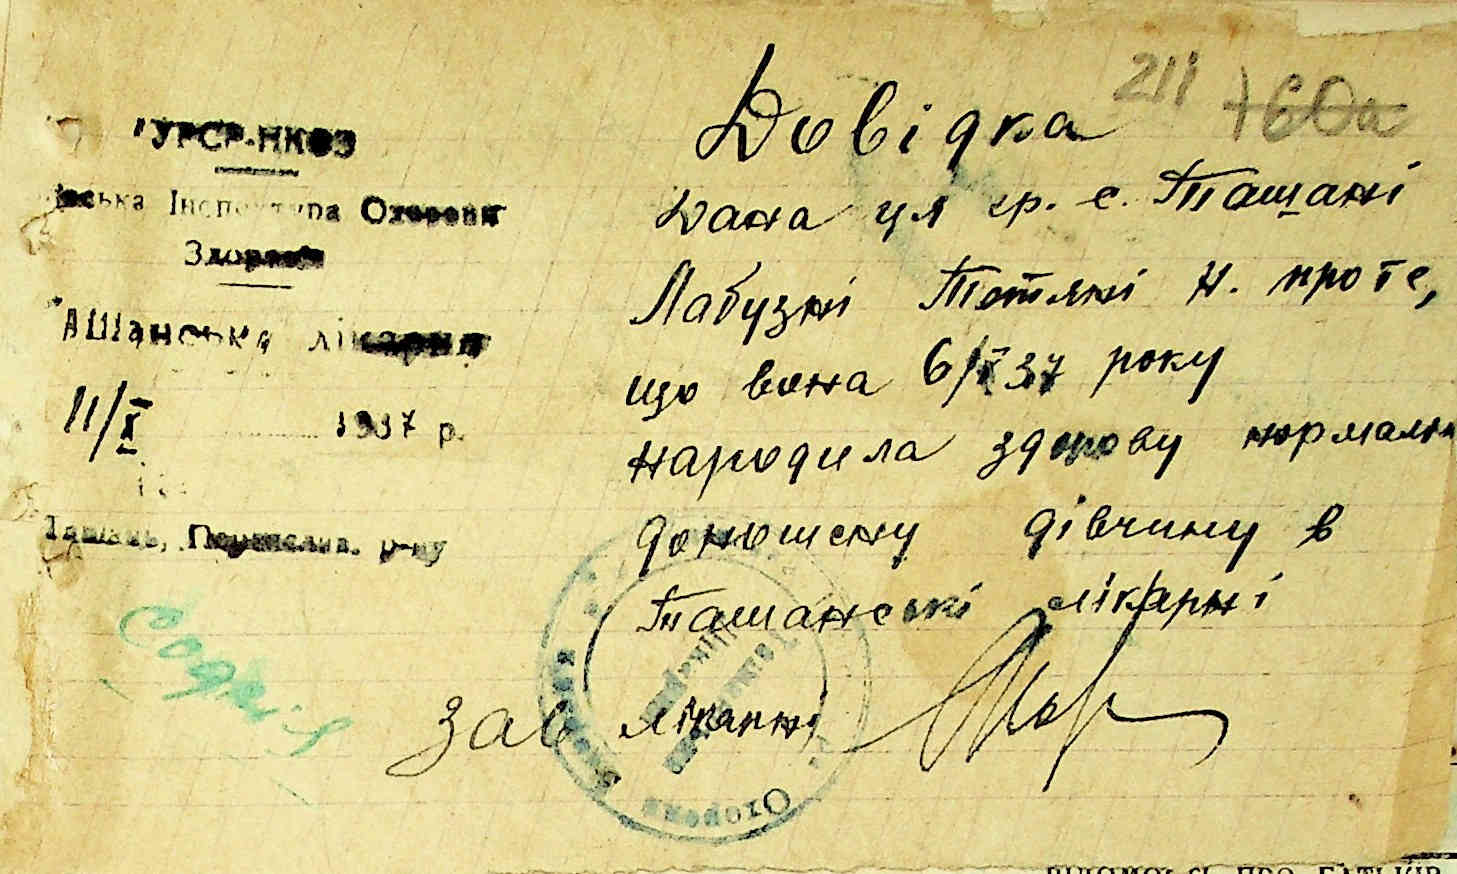 211 760а
УРСР-НКОЗ
ська Інспектура Охорони
Здоровя
АШанська лікарня
11/X 1937 р.
Ташань, Переяслав. р-ну
Довідка
Дана ця гр. с. Ташані
Лабузні Тетяні Н. про те,
що вона 6/X 37 року
народила здорову нормальн
доношену дівчину в
Ташанські лікарні
Зав лікарні
Софія
Охорони
ВІДОМОСТІ ПРО БАТЬКІВ